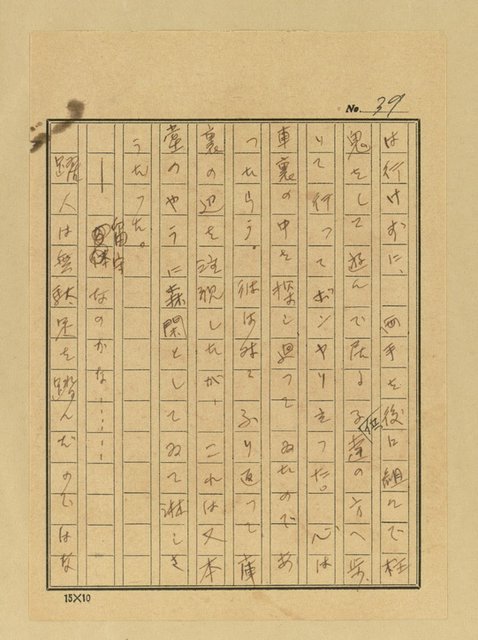 No. 39
は行けずに、両手を後に組んで枉
鬼をして遊んで居る子供達の方へ歩
いて行ってボンヤリ立った。心は
車裏の中を探し廻ってゐたのであ
ったらう。彼は外でふり返って庫
裏の辺を注視したが、これは又本
堂のやうに森閑としてゐて淋しさ
うだった。
――留守なのかな………
躍人は無駄足を踏んだのではな
15×10